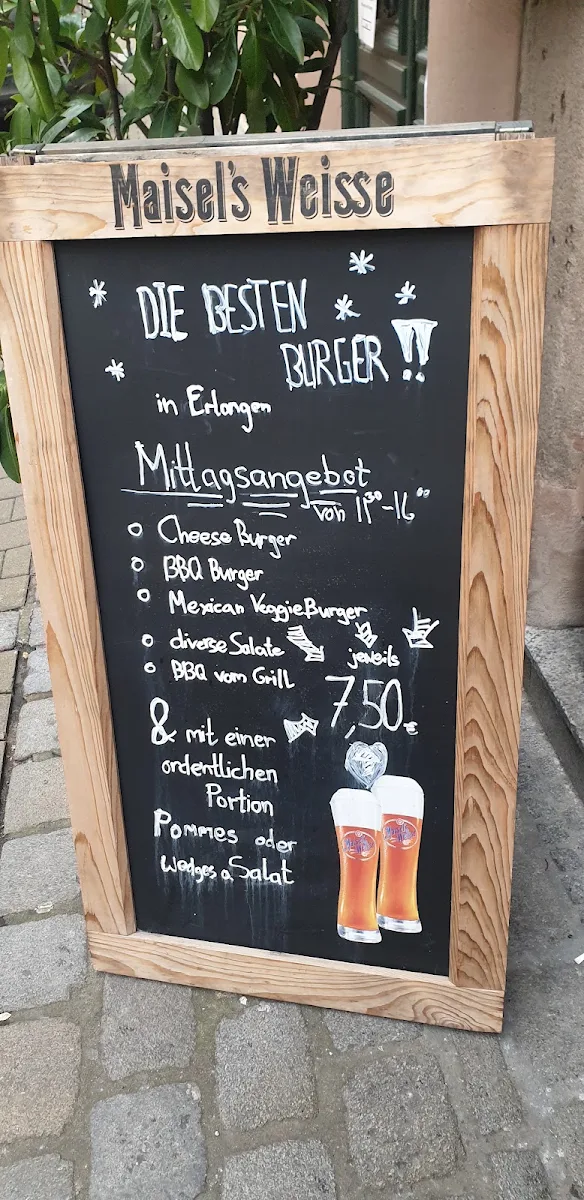 Maisel's Weisse
DIE BESTEN
BURGER !!
in Erlangen
Mittagsangebot
von 11³⁰-16⁰⁰
Cheese Burger
BBQ Burger
Mexican VeggieBurger
diverse Salate
jeweils
BBQ vom Grill
7,50 €
& mit einer
ordentlichen
Portion
Pommes oder
Wedges o Salat